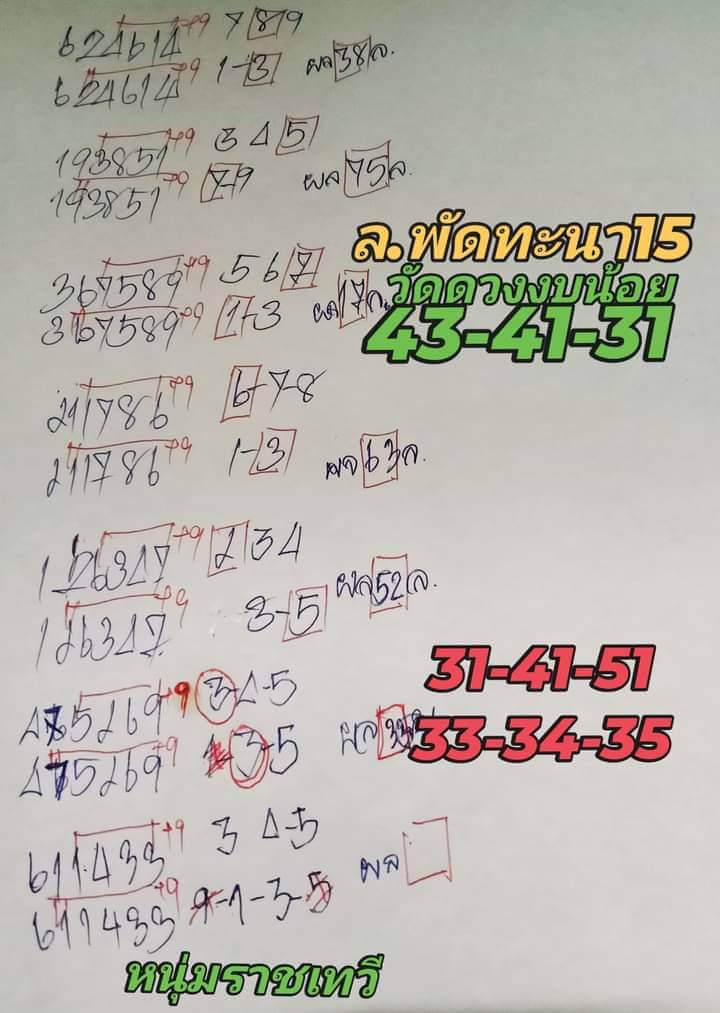 624614 +9 7 8 9
624614 +9 1-3 ผล 38 ล.
193851 +9 3 4 5
193851 +9 7-9 ผล 75 ล.
ล.พัดทะนา15
วัดดวงงบน้อย
43-41-31
367589 +9 5 6 7
367589 +9 1-3 ผล 17 ล.
211786 +9 6-7-8
211786 +9 1-3 ผล 63 ล.
126347 +9 2 3 4
126347 +9 3-5 ผล 52 ล.
31-41-51
475269 +9 3-4-5
475269 +9 1-3-5 ผล 33
33-34-35
611433 +9 3 4-5
611433 +9 9-1-3-5 ผล
หนุ่มราชเทวี